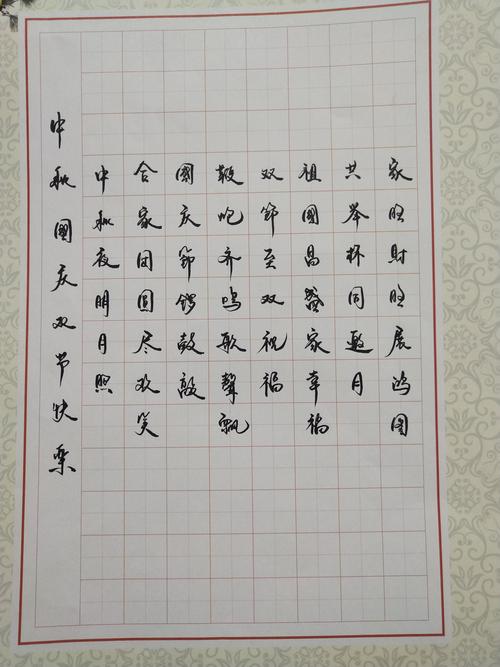 中秋國庆双节快樂
中秋夜明月照
合家团圆尽欢笑
國庆節锣鼓敲
鞭炮齐鸣歌聲飘
双節至双祝福
祖國昌盛家幸福
共举杯同邀月
家旺財旺展鸿图